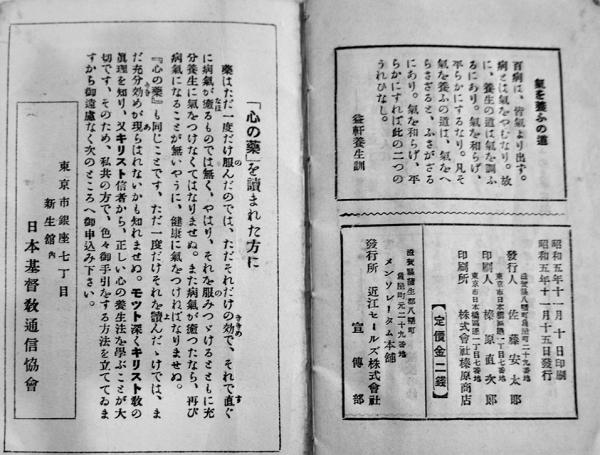 氣を養ふの道
百病は、皆氣より出す。
病とは氣をつむなり。故
に、養生の道は氣を調ふ
るにあり。氣を和らげ、
平らかにするなり。凡そ
氣を養ふの道は、氣をへ
らさざると、ふさがざる
にあり。氣を和らげ、平
らかにすれば此の二つの
うれひなし。
益軒養生訓
昭和五年十一月十日印刷
昭和五年十一月十五日發行
【定價金二錢】
滋賀縣八幡町魚屋町二十九番地
發行人 佐藤安太郎
東京市日本橋區通一丁目七番地
印刷人 榛原直次郎
東京市日本橋區通一丁目七番地
印刷所 株式會社榛原商店
滋賀縣蒲生郡八幡町
魚屋町元二十九番地
メンソレータム本舗
發行所 近江セールズ株式會社
宣傳部
「心の藥」を讀まれた方に
藥はただ一度だけ服んだのでは、ただそれだけの効で、それで直ぐ
に病氣が癒るものでは無く、やはり、それを服みつゞけるとともに充
分養生に氣をつけなくてはなりませぬ。また病氣が癒つたなら、再び
病氣になることが無いやうに、健康に氣をつければなりませぬ。
『心の藥』も同じことです、ただ一度だけそれを讀んだゞけでは、ま
だ充分効めが現らはれないかも知れませぬ。モツト深くキリスト敎の
眞理を知り、又キリスト信者から、正しい心の養生法を學ぶことが大
切です、そのため、私共の方で、色々御手引をする方法を立ててゐま
すから御遠慮なく次のところへ御申込み下さい。
東京市銀座七丁目
新生館内
日本基督敎通信協會